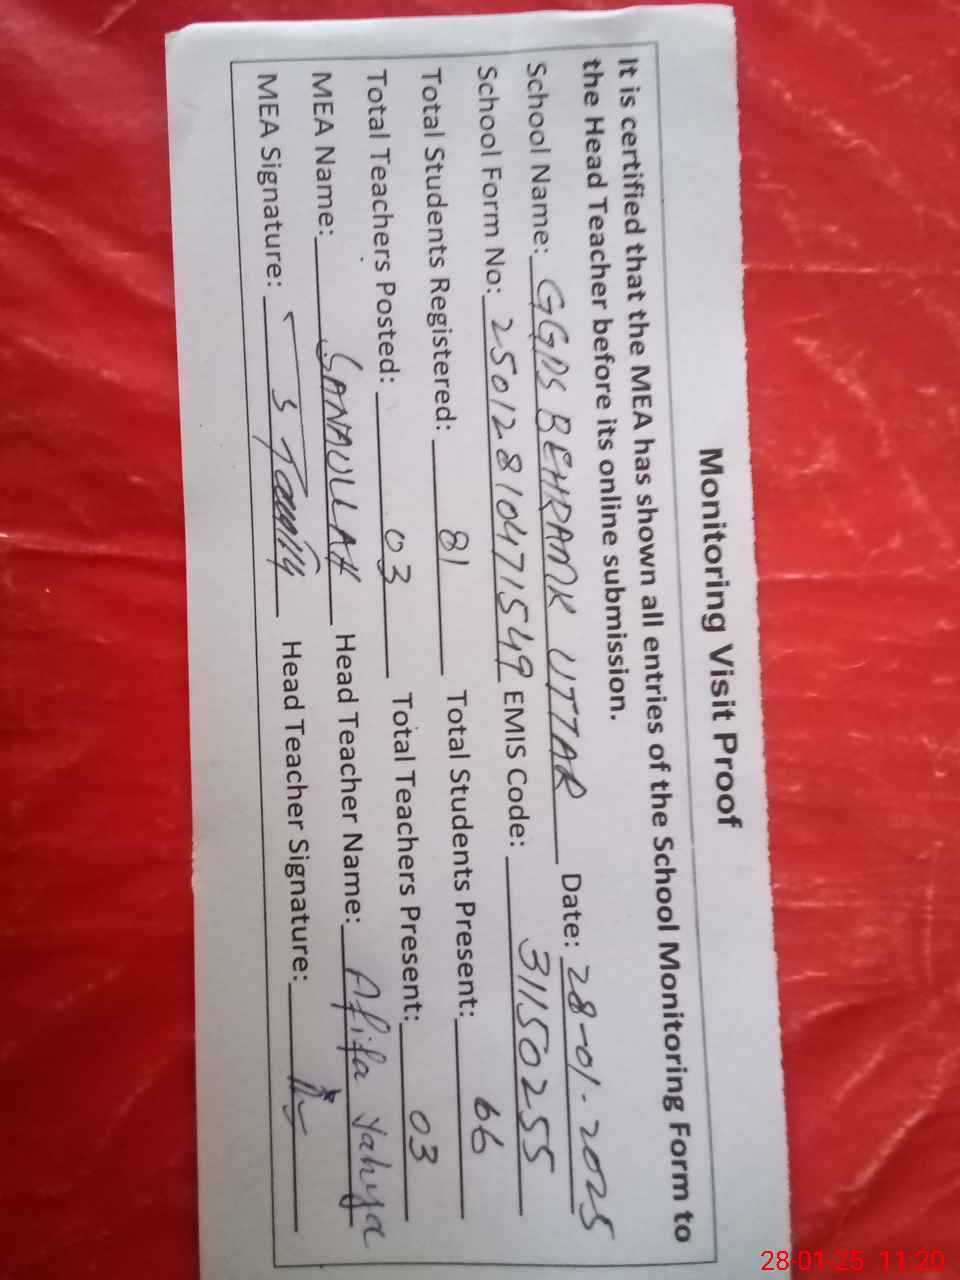 Monitoring Visit Proof
It is certified that the MEA has shown all entries of the School Monitoring Form to
the Head Teacher before its online submission.
School Name: GGPS BEHRAMK UTTAR Date: 28-01-2025
School Form No: 25012810471549 EMIS Code: 31150255
Total Students Registered: 81 Total Students Present: 66
Total Teachers Posted: 03 Total Teachers Present: 03
MEA Name: SANAULLAH Head Teacher Name: Afifa Yahya
MEA Signature: Head Teacher Signature:
28-01-25 11:20